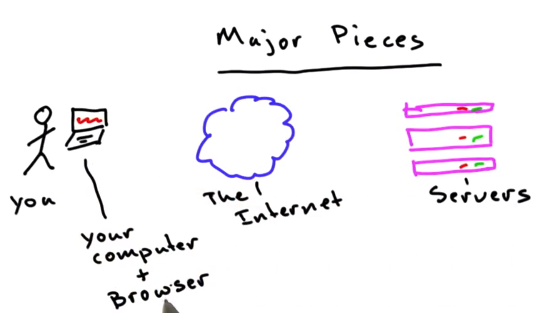 Major Pieces
you
your
computer
+
Browser
The
Internet
Servers